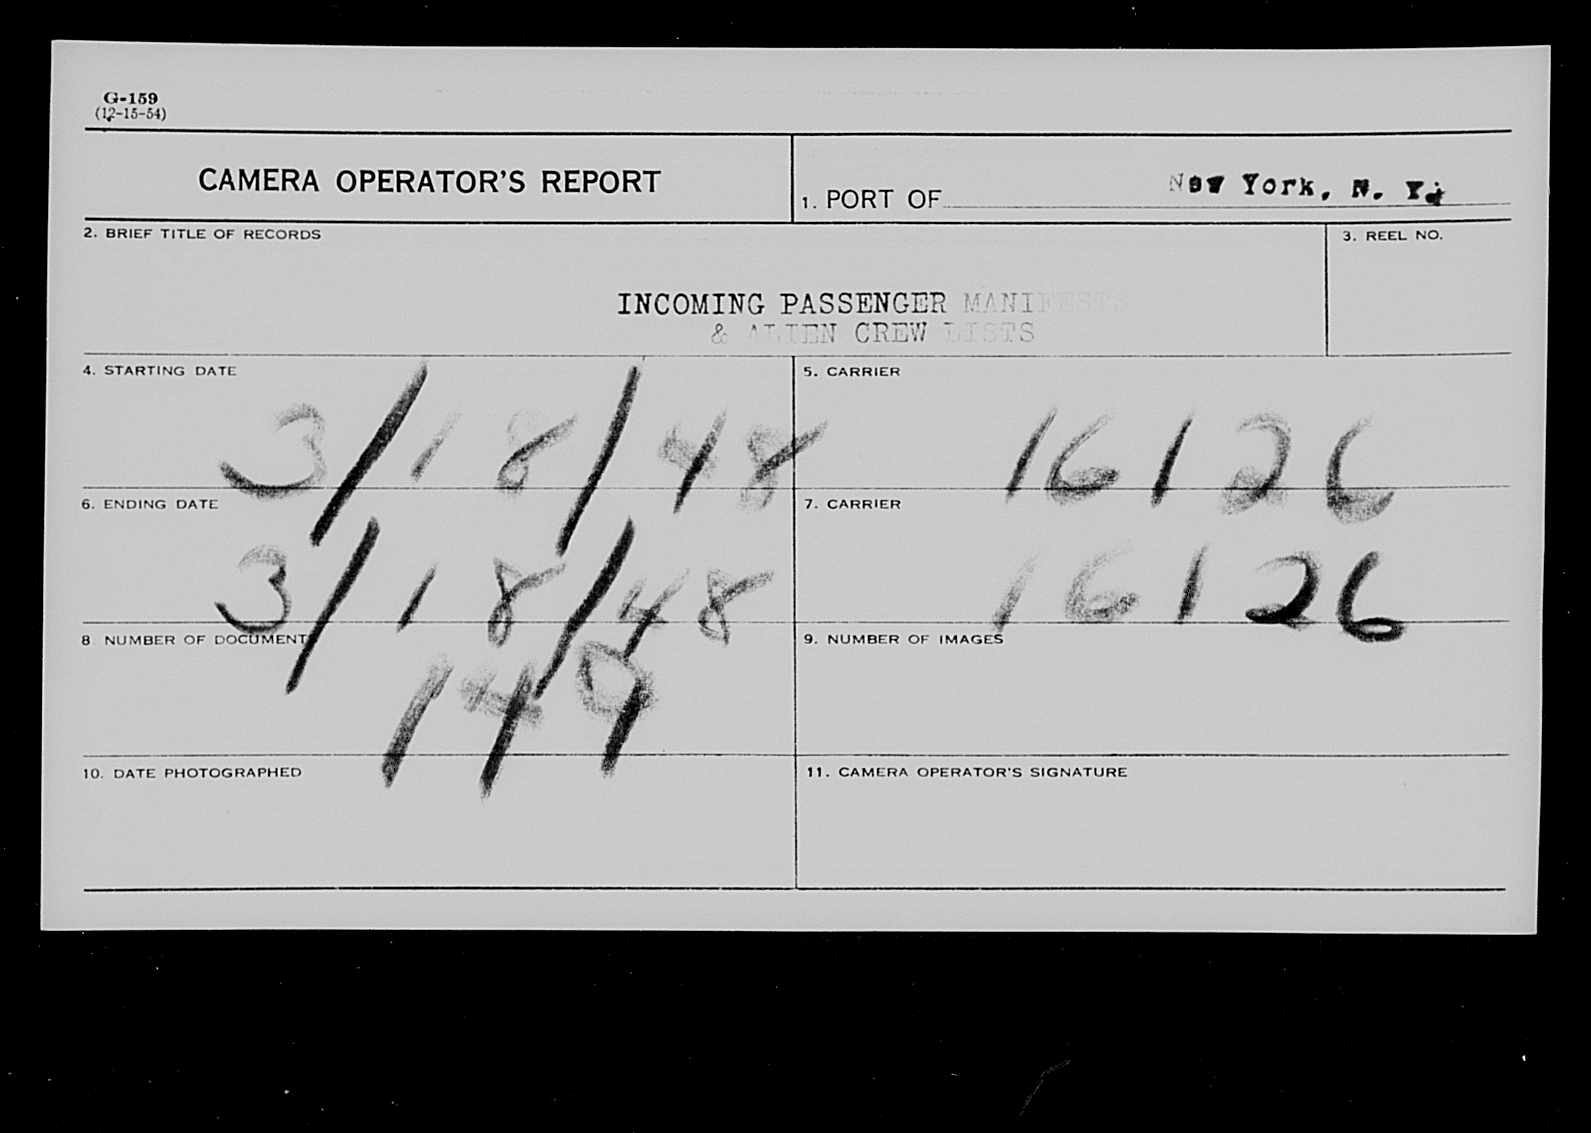 G-159
(12-15-54)
CAMERA OPERATOR'S REPORT
1. PORT OF New York, N. Y.
2. BRIEF TITLE OF RECORDS
3. REEL NO.
INCOMING PASSENGER MANIFESTS
& ALIEN CREW LISTS
4. STARTING DATE
3/18/48
5. CARRIER
16126
6. ENDING DATE
3/18/48
7. CARRIER
16126
8 NUMBER OF DOCUMENTS
149
9. NUMBER OF IMAGES
10. DATE PHOTOGRAPHED
11. CAMERA OPERATOR'S SIGNATURE